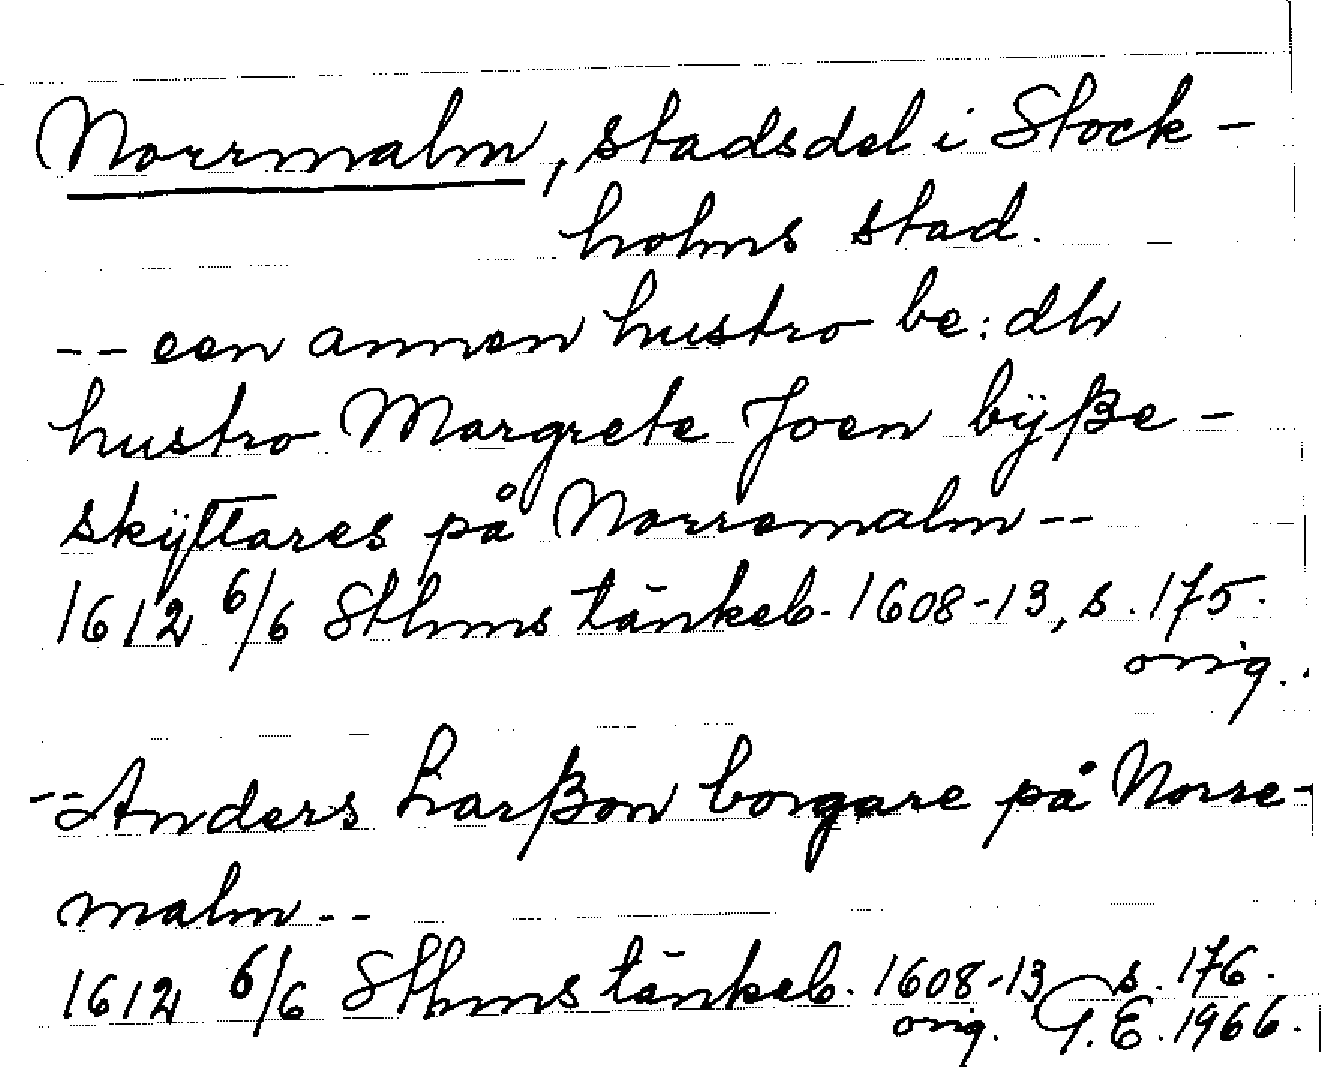 Norrmalm, stadsdel i Stock-
holms stad.
-- een annen hustro be:dh
hustro Margrete Joen byße-
skÿttares på Norremalm --
1612 6/6 Sthms tänkeb. 1608-13, s. 175.
orig.
-- Anders Larßon borgare på Norre-
malm --
1612 6/6 Sthms tänkeb. 1608-13 s. 176.
orig. G.E. 1966.